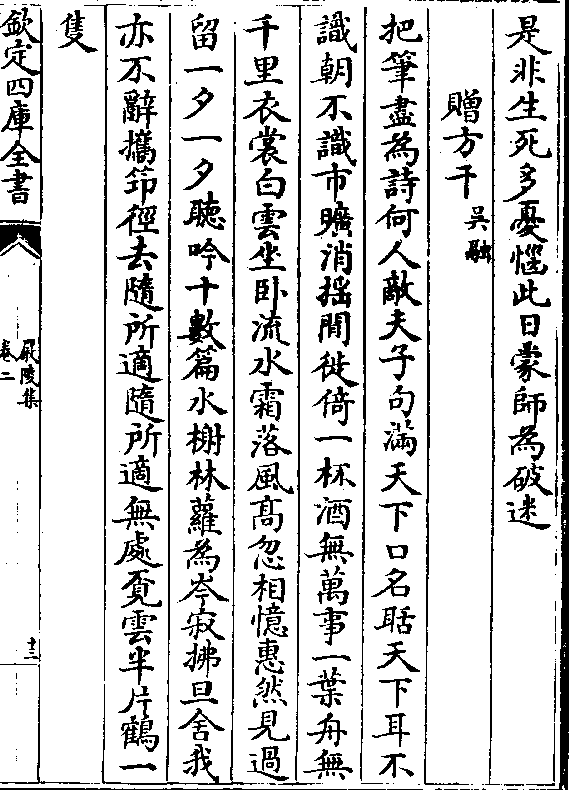 是非生死多憂惱此日蒙師為破迷
贈方干 吳融
把筆盡為詩何人敵夫子句滿天下口名聒天下耳不
識朝不識市曠消揺閒徙倚一杯酒無萬事一葉舟無
千里衣裳白雲坐卧流水霜落風髙忽相憶惠然見過
留一夕一夕聽吟十數篇水榭林蘿為岑寂拂旦舍我
亦不辭攜筇徑去隨所適隨所適無處覔雲半片鶴一
隻
欽定四庫全書
嚴陵集
卷二
十三